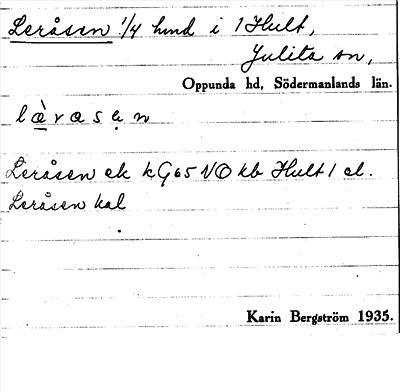 Leråsen 1/4 hmd i 1 Hult,
Julita sn,
Oppunda hd, Södermanlands län.
Leråsen ek kG65 NO kb Hult 1 el.
Leråsen kal
Karin Bergström 1935.